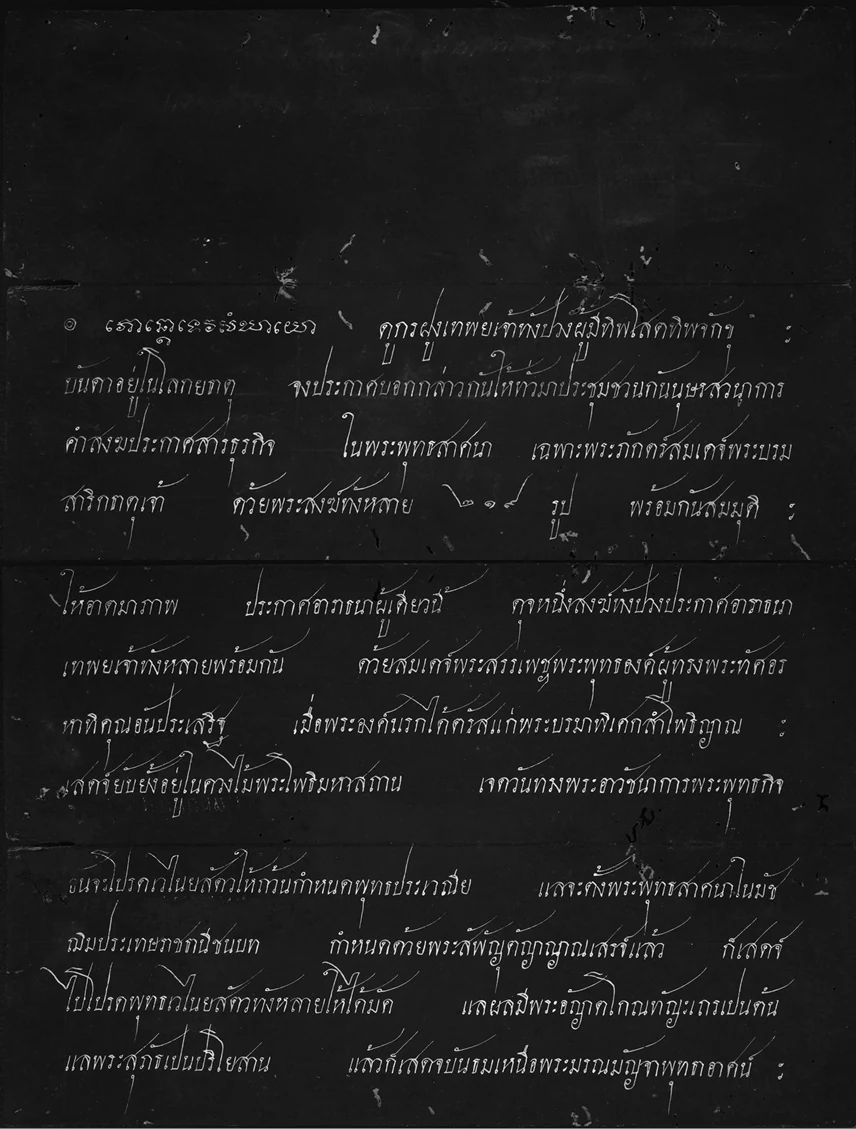 ๏ ดูกรฝูงเทพยเจ้าทังปวงผู้มีทิพโสตทิพจักขุ ฯ
บันดาอยู่ในโลกยธาตุ จงประกาศบอกกล่าวกันให้ทั่วมาประชุมชวนกันนุษรสวนาการ
คำสงฆประกาศสารธุรกิจ ในพระพุทธสาศนา เฉภาะพระภักตร์สมเดจ์พระบรม
สาริกธาตุเจ้า ด้วยพระสงฆ์ทังหลาย ๒๑๙ รูป พร้อมกันสมมุติ ฯ
ให้อาตมาภาพ ประกาศอาราธนาผู้เดียวนี้ ดุจหนึ่งสงฆ์ทังปวงประกาศอาราธนา
เทพยเจ้าทังหลายพร้อมกัน ด้วยสมเดจ์พระสรรเพชพระพุทธองค์ผู้ทรงพระทัศอร
หาทิคุณอันประเสริฐ เมื่อพระองค์แรกได้ตรัสแก่พระบรมาพิเศกสำโพธิญาณ ฯ
เสดจ์ยับยั้งอยู่ในควงไม้พระโพธิมหาสถาน เจดวันทรงพระอาวัชนาการพระพุทธกิจ
อันจะโปรดเวไนยสัตวให้ถ้วนกำหนดพุทธประเวณีย แลจะตั้งพระพุทธสาศนาในมัช
ฌิมประเทษราชธานีชนบท กำหนดด้วยพระสัพัญุตัญาณเสรจ์แล้ว ก็เสดจ์
ไปโปรดพุทธเวไนยสัตวทังหลายให้ได้มัค แลผลมีพระอัญาโกณทัญะเถรเป็นต้น
แลพระสุภัธเป็นปริโยสาน แล้วก็เสดจบันธมเหนือพระมรณมัญจาพุทธาอาศน์ ฯ